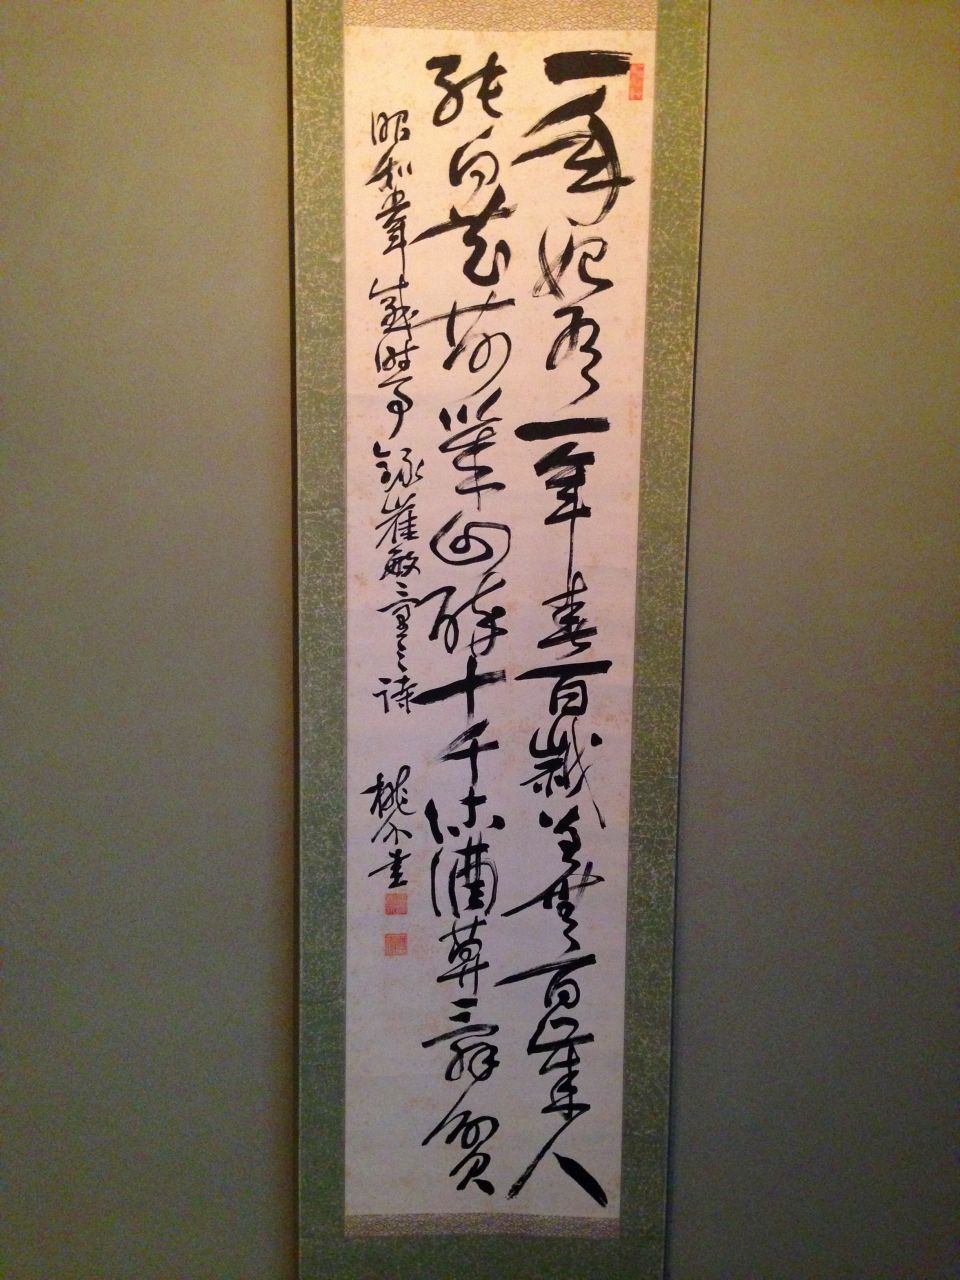 一年始有一年春百歳曽無百歳人
能向花前幾回酔十千沽酒莫辞貧
昭和 時事 録崔敏童之詩 桃介書